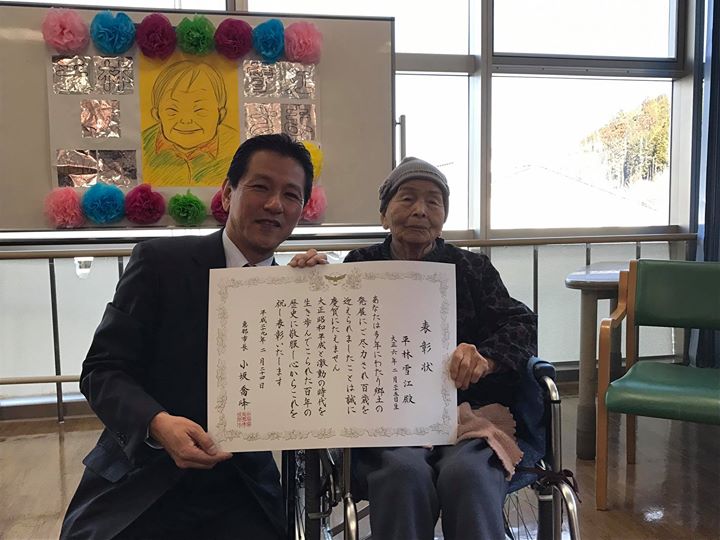 表彰状
平林雪江殿
大正六年二月二十五日生
あなたは多年にわたり郷土の
発展にご尽力され百歳を
迎えられましたことは誠に
慶賀にたえません
大正昭和平成と激動の時代を
生き歩んでこられた百年の
歴史に敬服し心からこれを
祝し表彰いたします
平成二十九年二月二十四日
恵那市長 小坂喬峰